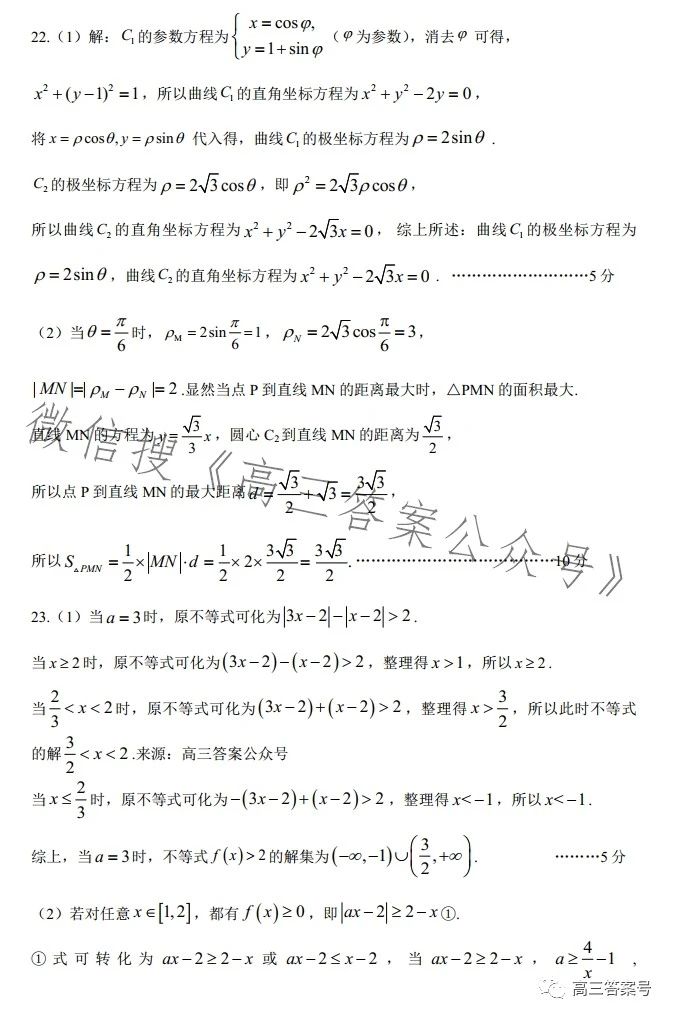 22.（1）解：C₁的参数方程为{x=cosφ, y=1+sinφ（φ为参数），消去φ可得，
x²+(y−1)²=1，所以曲线C₁的直角坐标方程为x²+y²−2y=0，
将x=ρcosθ,y=ρsinθ 代入得，曲线C₁的极坐标方程为ρ=2sinθ .
C₂的极坐标方程为ρ=2√3cosθ，即ρ²=2√3ρcosθ，
所以曲线C₂的直角坐标方程为x²+y²−2√3x=0， 综上所述：曲线C₁的极坐标方程为
ρ=2sinθ，曲线C₂的直角坐标方程为x²+y²−2√3x=0 . ………………………5 分
（2）当θ=π/6时，ρ_M=2sin π/6=1，ρ_N=2√3cos π/6=3，
|MN|=|ρ_M−ρ_N|=2 .显然当点 P 到直线 MN 的距离最大时，△PMN 的面积最大.
直线 MN 的方程为y=√3/3 x，圆心 C₂到直线 MN 的距离为√3/2，
所以点 P 到直线 MN 的最大距离d=√3/2+√3=3√3/2，
所以S_△PMN=1/2×|MN|·d=1/2×2×3√3/2=3√3/2. …………………………………10 分
微信搜《高三答案公众号》
23.（1）当a=3时，原不等式可化为|3x−2|−|x−2|>2 .
当x≥2时，原不等式可化为(3x−2)−(x−2)>2，整理得x>1，所以x≥2 .
当2/3<x<2时，原不等式可化为(3x−2)+(x−2)>2，整理得x>3/2，所以此时不等式
的解3/2<x<2 .来源：高三答案公众号
当x≤2/3时，原不等式可化为−(3x−2)+(x−2)>2，整理得x<−1，所以x<−1 .
综上，当a=3时，不等式f(x)>2的解集为(−∞,−1)∪(3/2,+∞) . ………5 分
（2）若对任意x∈[1,2]，都有f(x)≥0，即|ax−2|≥2−x①.
①式可转化为 ax−2≥2−x 或 ax−2≤x−2 ，当 ax−2≥2−x ，a≥4/x−1 ，
高三答案号